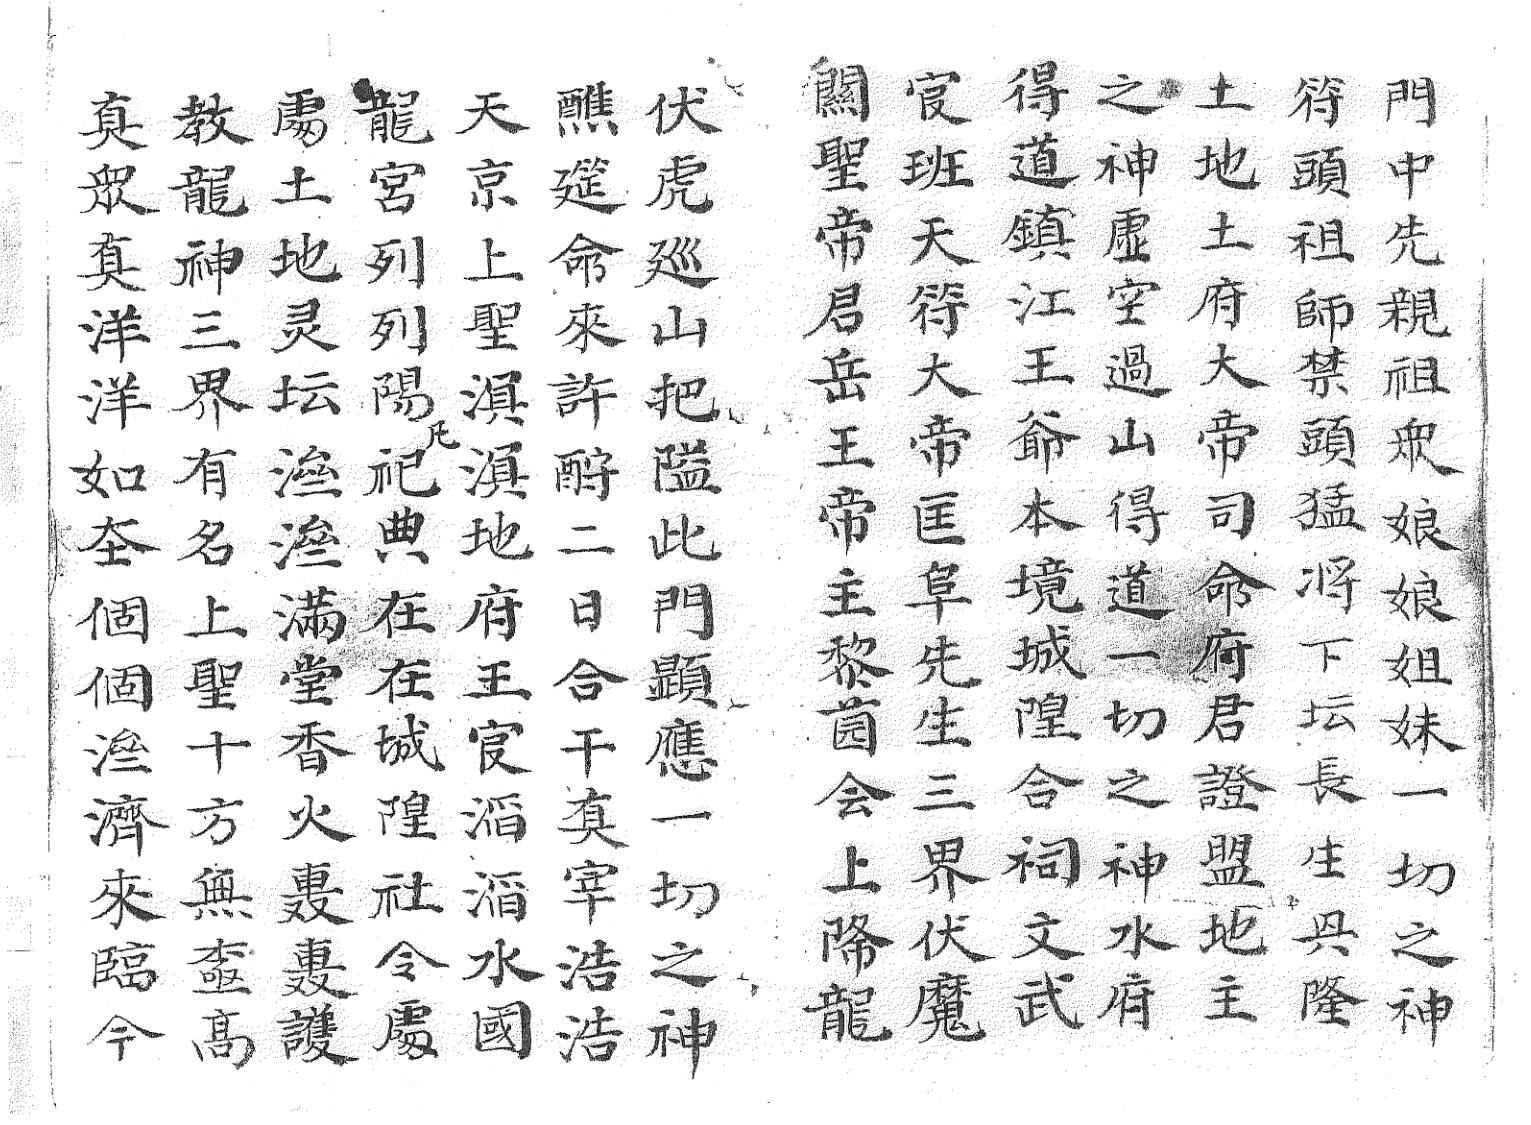 門中先親祖眾娘娘姐妹一切之神
符頭祖師禁頭猛将下坛長生興隆
土地土府大帝司命府君證盟地主
之神虛空過山得道一切之神水府
得道鎮江王爺本境城隍合祠文武
官班天符大帝匡阜先生三界伏魔
關聖帝君岳王帝主黎園会上降龍
伏虎巡山把隘此門顯應一切之神
醮筵命來許酧二日合干真宰浩浩
天京上聖滇滇地府王官滔滔水國
龍宮列列陽祀典在在城隍社令處
處土地灵坛濟濟滿堂香火轟轟護
教龍神三界有名上聖十方無壺高
真眾真洋洋如在個個濟濟來臨今